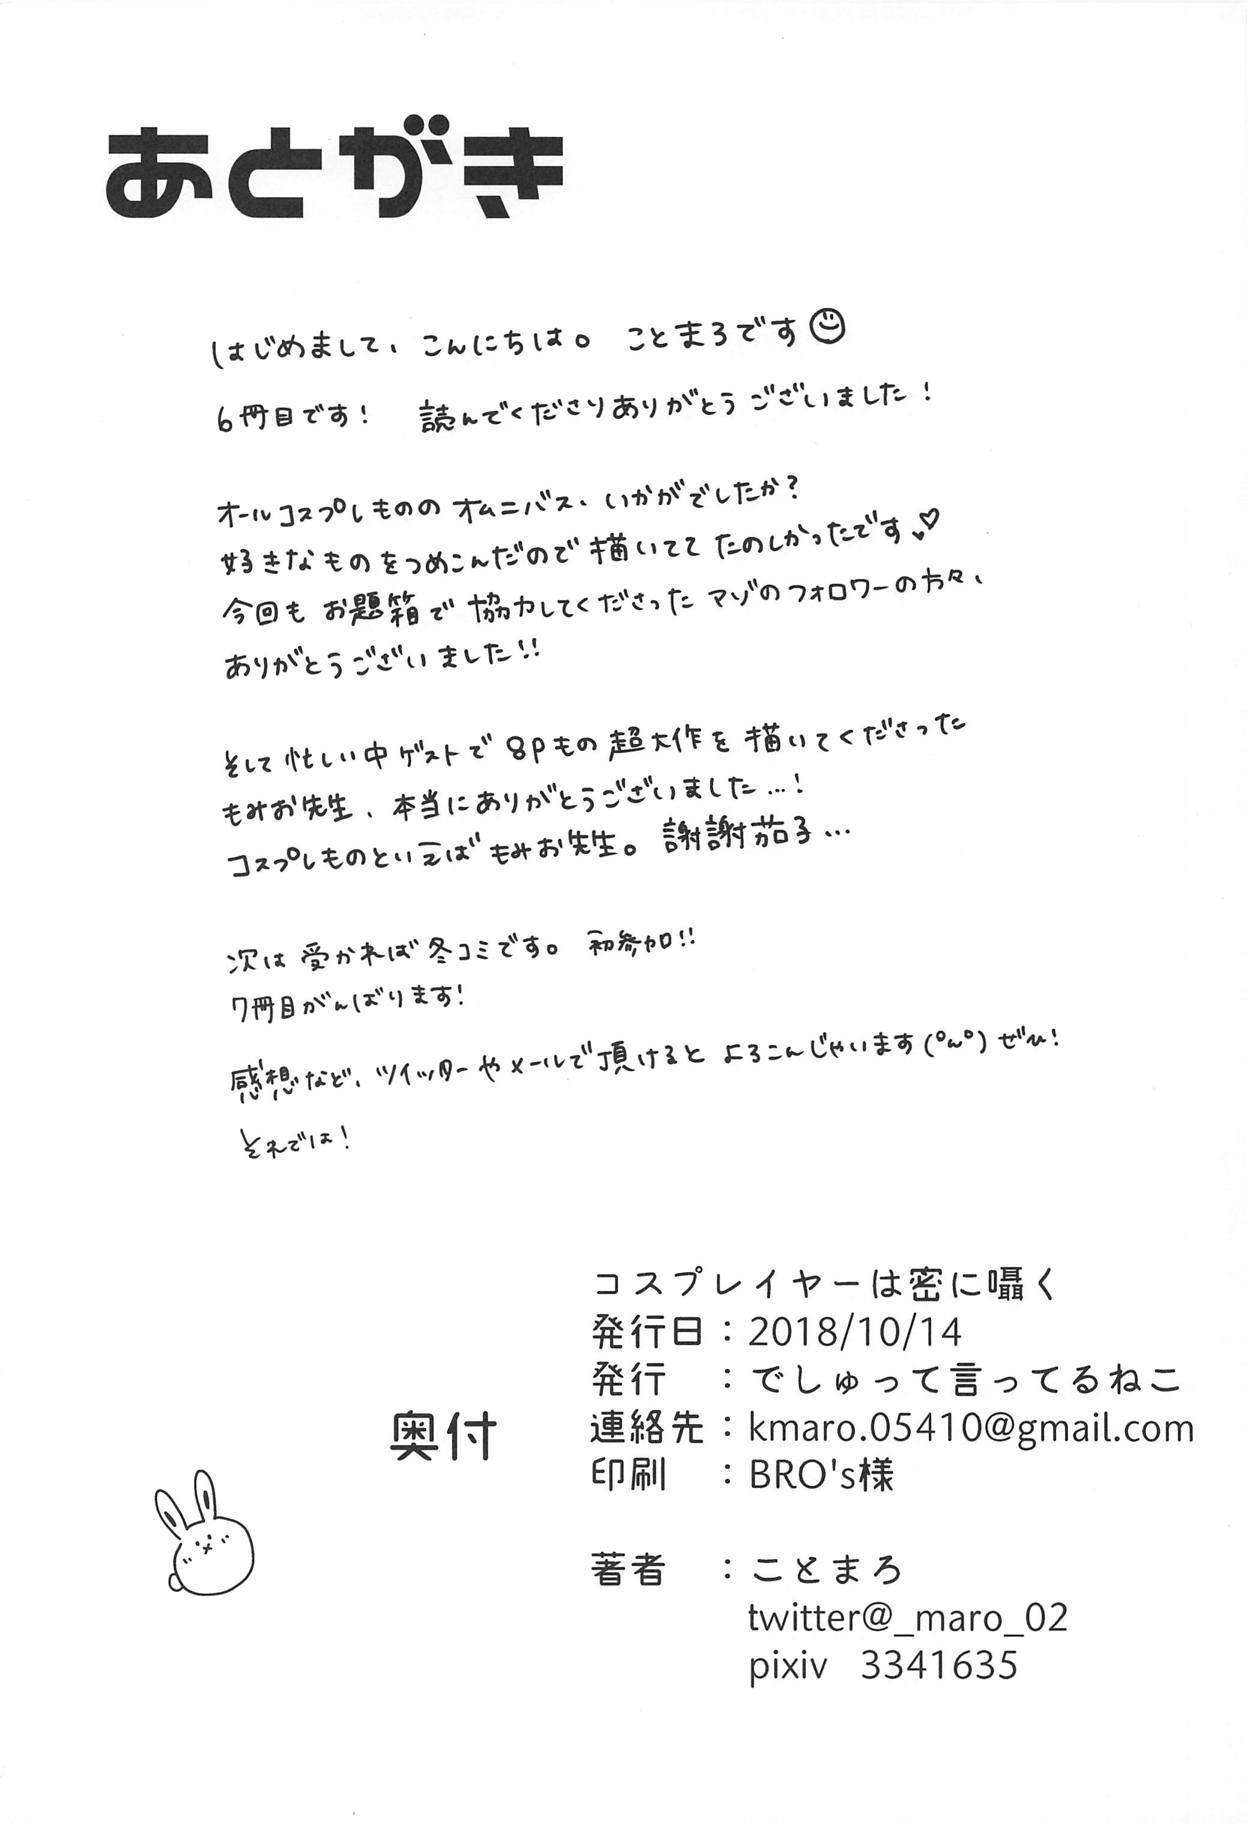 あとがき
はじめまして、こんにちは。 ことまろです
6冊目です! 読んでくださりありがとうございました!
オールコスプレもののオムニバス、いかがでしたか?
好きなものをつめこんだので描いてて たのしかったです
今回も お題箱で 協力してくださった マゾのフォロワーの方々、
ありがとうございました!!
そして忙しい中 ゲストで 8Pもの 超大作を 描いてくださった
もみお先生、本当にありがとうございました…!
コスプレものといえば もみお先生。謝謝茄子…
次は 受かれば 冬コミです。 初参加!!
7冊目がんばります!
感想など、ツイッターやメールで頂けると よろこんじゃいます(°ω°) ぜひ!
それでは!
コスプレイヤーは密に囁く
発行日:2018/10/14
発行 :でしゅって言ってるねこ
奥付
連絡先:kmaro.05410@gmail.com
印刷 :BRO's様
著者 :ことまろ
twitter@_maro_02
pixiv 3341635